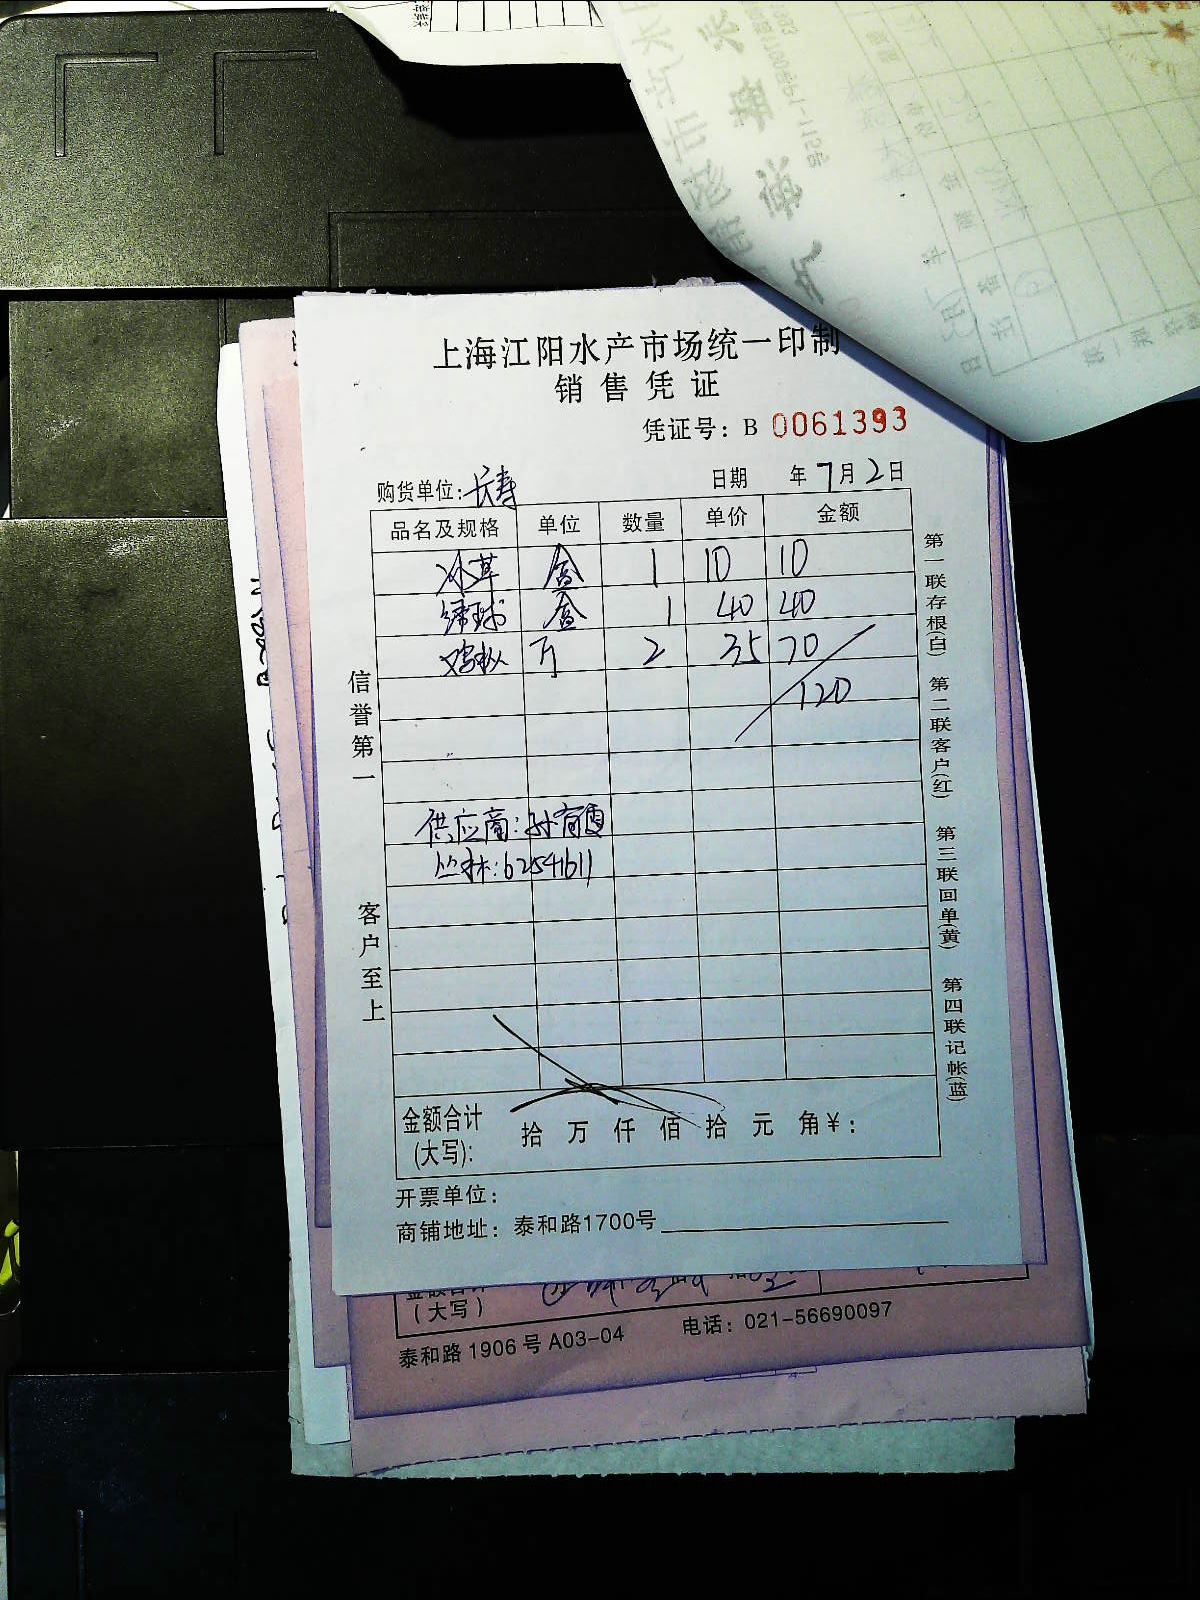 上海江阳水产市场统一印制
销售凭证
凭证号：B 0061393
购货单位：长寿 日期 年7月2日
品名及规格 单位 数量 单价 金额
冰草 盒 1 10 10
绣球 盒 1 40 40
鸡枞 斤 2 35 70
120
供应商：
丛林：62541611
金额合计
(大写)： 拾 万 仟 佰 拾 元 角 ¥：
开票单位：
商铺地址：泰和路1700号
信誉第一
客户至上
第一联存根(白) 第二联客户(红) 第三联回单(黄) 第四联记帐(蓝)
(大写)
泰和路 1906 号 A03-04 电话：021-56690097